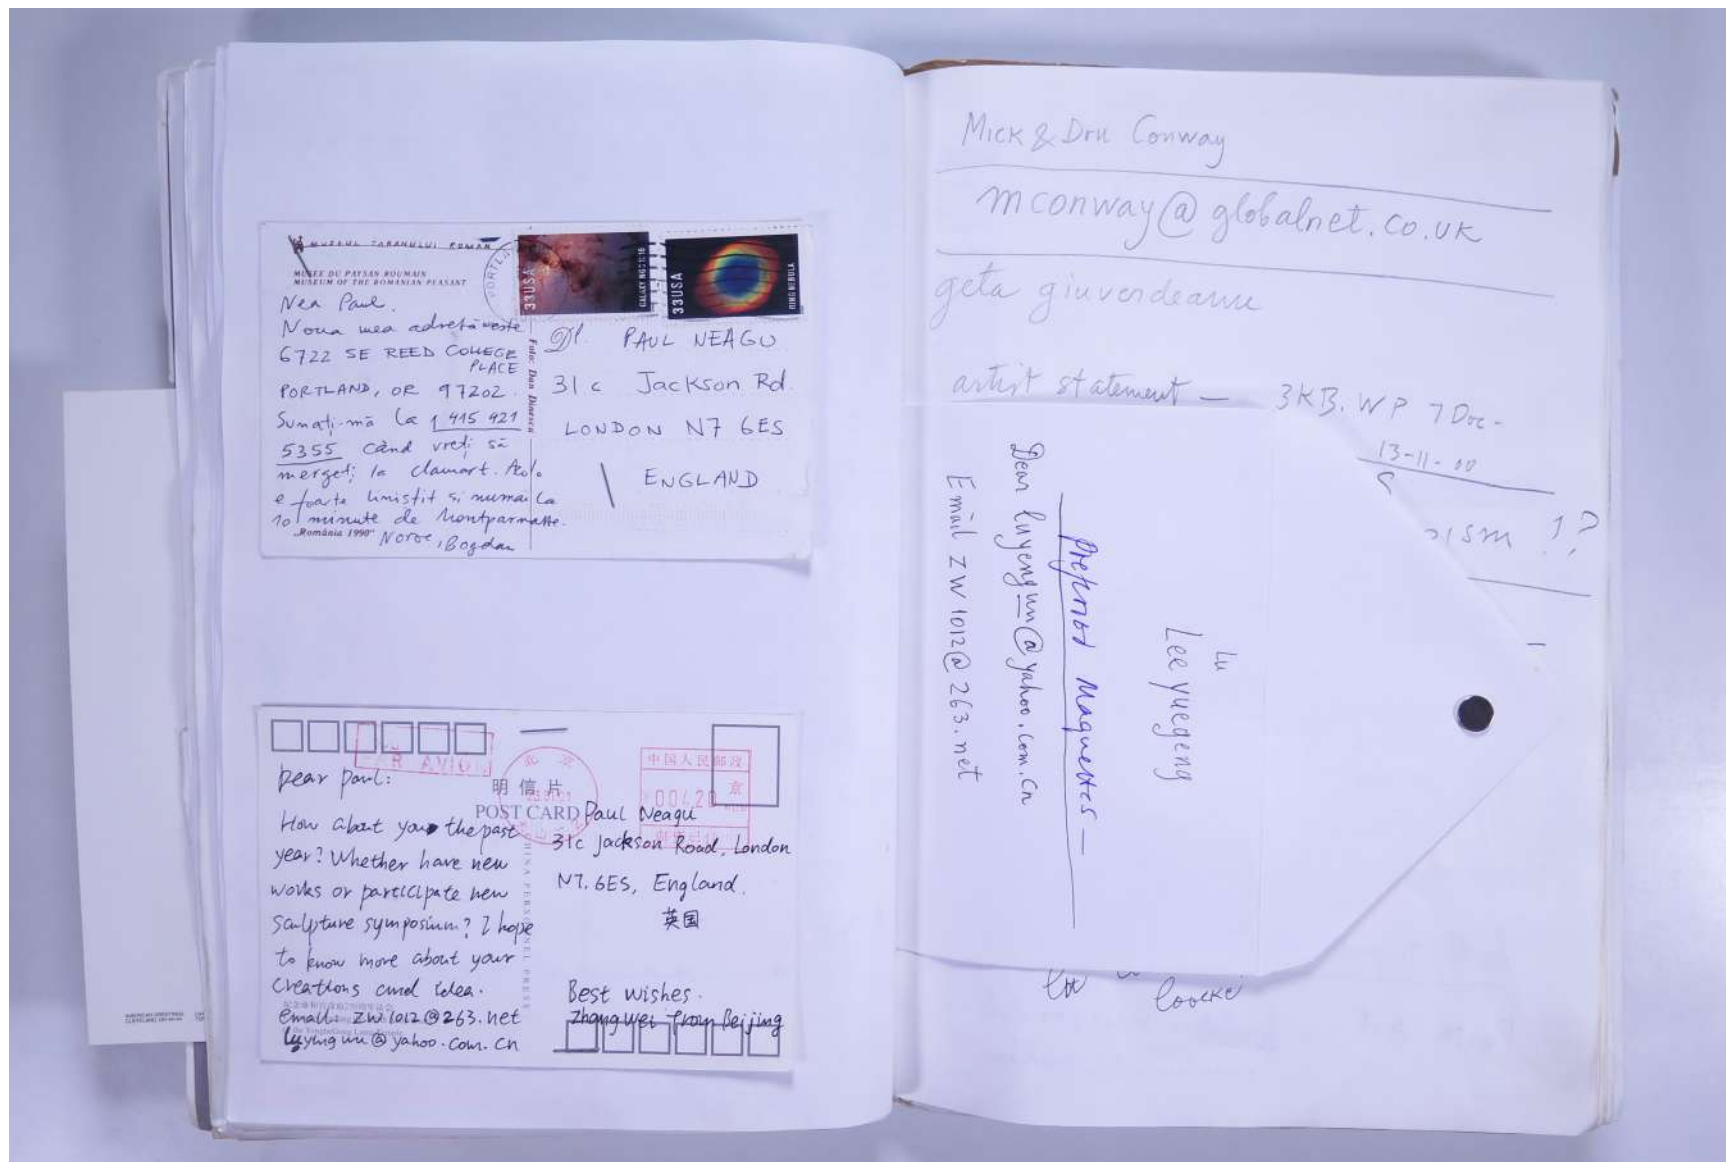 MUZEUL ȚĂRANULUI ROMÂN
MUSÉE DU PAYSAN ROUMAIN
MUSEUM OF THE ROMANIAN PEASANT
Nea Paul.
Noua mea adresă este
6722 SE REED COLLEGE
PLACE
PORTLAND, OR 97202.
Sunați-mă la 1 415 921
5355 când vreți să
mergeți la Clamart. Acolo
e foarte liniștit si numai la
10 minute de Montparnasse.
„România 1990"
Noroc, Bogdan
Foto: Dan Dinescu
PORTLAN
33USA
GALAXY NGC
33USA
RING NEBULA
Dl. PAUL NEAGU
31c Jackson Rd.
LONDON N7 6ES
ENGLAND
PAR AVION
北京
中国人民邮政
京
00420
明信片
POST CARD
CHINA PERSONNEL PRESS
Dear Paul:
How about you the past
year? Whether have new
works or participate new
sculpture symposium? I hope
to know more about your
creations and idea.
email: zw1012@263.net
luyingwu@yahoo.com.cn
Paul Neagu
31c Jackson Road, London
N7. 6ES, England.
英国
Best wishes.
Zhang Wei from Beijing
AMERICAN GREETINGS
Mick & Dru Conway
mconway@globalnet.co.uk
geta
artist statement — 3KB. WP 7 Doc-
13-11-00
ism !?
Lu
Lee yuegeng
Preferred Maquettes —
Email zw1012@263.net